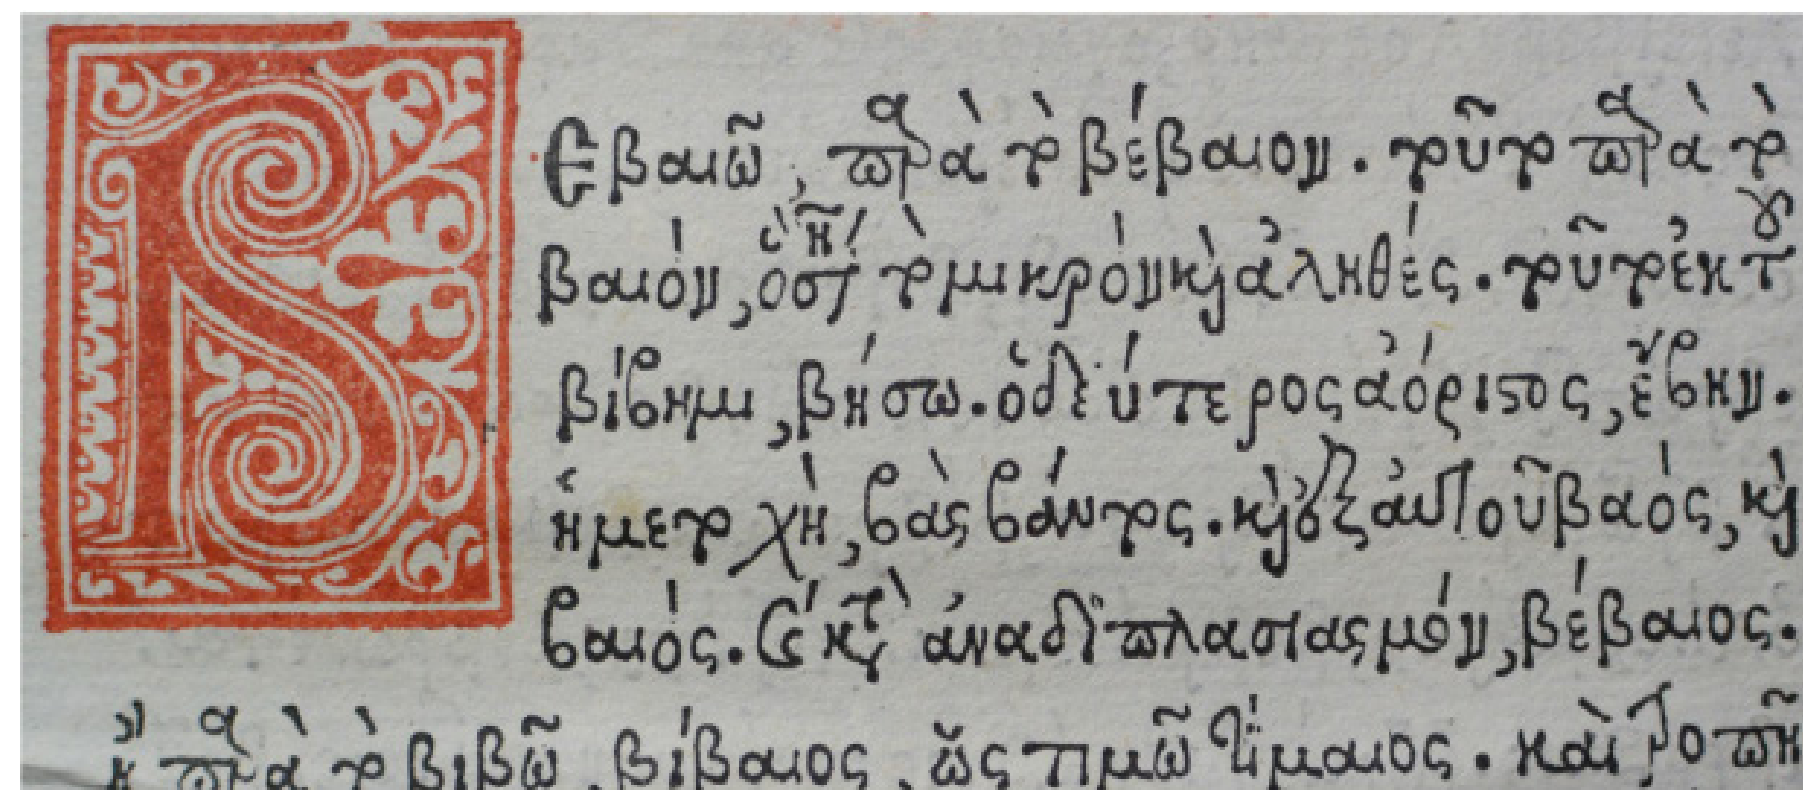 Βεβαιῶ, παρὰ τὸ βέβαιον. τοῦτο παρὰ τὸ
βαιόν, τὸ μικρόν καὶ ἀληθές. τοῦτο ἐκ τοῦ
βίβημι, βήσω. ὁ δεύτερος ἀόριστος, ἔβην.
ἡ μετοχὴ, βὰς βάντος. καὶ ἐξ αὐτοῦ βαός, καὶ
βαιός. καὶ κατὰ ἀναδιπλασιασμόν, βέβαιος.
ἢ παρὰ τὸ βιβῶ, βίβαιος, ὡς τιμῶ τίμαιος. καὶ τροπῆ